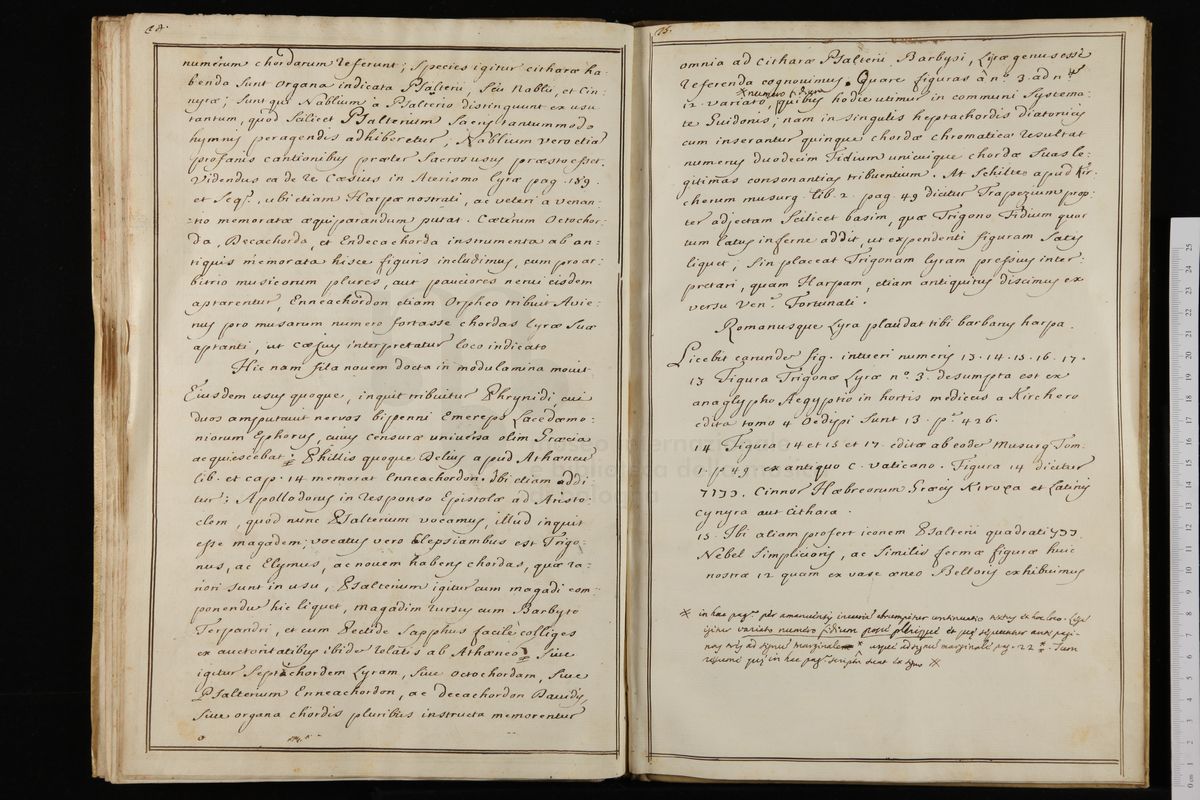 numerum chordarum referunt; species igitur citharæ ha-
benda sunt organa indicata Psalterii, seu Nablii, et Cin-
nyræ; sunt qui Nablium a Psalterio distinguunt ex usu
tantum, quod scilicet Psalterium sacris tantummodo
hymnis peragendis adhiberetur, Nablium vero etia
profanis cantionibus præter sacros usus præsto esset.
Videndus ea de re Cæsius in Aterismo lyræ pag. 189.
et seq., ubi etiam Harpæ nostrati, ac veteri a Venan-
tio memoratæ æquiparandum putat. Cæterum Octochor-
da, Decachorda, et Endecachorda instrumenta ab an-
tiquis memorata hisce figuris includimus, cum pro ar-
bitrio musicorum plures, aut pauciores nervi eisdem
aptarentur, Enneachordon etiam Orpheo tribuit Avie-
nus pro musarum numero fortasse chordas lyræ suæ
aptanti, ut Cæsius interpretatur loco indicato
Hic nam sita novem docta in modulamina movit
Eiusdem usus quoque, inquit tribuitur Phrynidi, cui
duos amputavit nervos bipenni Emerepes Lacedæmo-
niorum Ephorus, cuius censuræ universa olim Græcia
acquiescebat; Phillis quoque Delius apud Athæneu
lib. et cap. 14 memorat Enneachordon. Ibi etiam addi
tur: Apollodorus in responso Epistolæ ad Aristo-
clem, quod nunc Psalterium vocamus, illud inquit
esse magadem; vocatus vero Clepsiambus est Trigo-
nus, ac Elymus, ac novem habens chordas, quæ ra-
riori sunt in usu, Psalterium igitur cum magadi com-
ponendu hic liquet, magadim rursus cum Barbyto
Terpandri, et cum Pectide Sapphus facile colliges
ex auctoritatibus ibide relatis ab Athæneo. Sive
igitur septichordem Lyram, sive octochordam, sive
Psalterium Enneachordon, ac decachordon Davidis,
sive organa chordis pluribus instructa memorentur
75.
omnia ad Citharæ Psalterii Barbysi, Lyræ genus esse
referenda cognovimus. Quare figuras a n.° 3. ad n.m
12. variato, ※ numero fidium quibus hodie utimur in communi systema-
te Guidonis; nam in singulis heptachordis diatonicis
cum inserantur quinque chordæ chromaticæ resultat
numerus duodecim Fidium unicuique chordæ suas le-
gitimas consonantias tribuentium. At Schilteo apud Kir-
cherum musurg. lib. 2. pag 49 dicitur Trapezium prop-
ter adjectam scilicet basim, quæ Trigono Fidium quar
tum latus inferne addit, ut expendenti figuram satis
liquet; sin placeat Trigonam lyram pressius inter-
pretari, quam Harpam, etiam antiquitus discimus ex
versu Ven.i Fortunati.
Romanusque Lyra plaudat tibi barbarus harpa.
Licebit earunde fig. intueri numeris 13. 14. 15. 16. 17.
13 Figura Trigonæ Lyræ n.° 3. desumpta est ex
anaglypho Aegyptio in hortis mediceis a Kirchero
edita tomo 4 Oedipi sunt 13. p.a 426.
14. Figura 14 et 15 et 17. editæ ab eode Musurg. Tom.
1. p 49 ex antiquo C. Vaticano. Figura 14 dicitur
כנור. Cinnor Hæbreorum Græcis Κινυρα et Latinis
Cynyra aut Cithara.
15. Ibi aliam profert iconem Psalterii quadrati נבל
Nebel simplicioris, ac similis fermæ figuræ huic
nostræ 12 quam ex vase æneo Bellorii exhibuimus
※ in hac pag.a per amanuensis incuria abrumpitur continuatio textus ex hoc loco. Lege
igitur variato numero fidium
ad signu marginale ※ usque ad signu marginale pag. 22 ※. Tum
in hac pag.